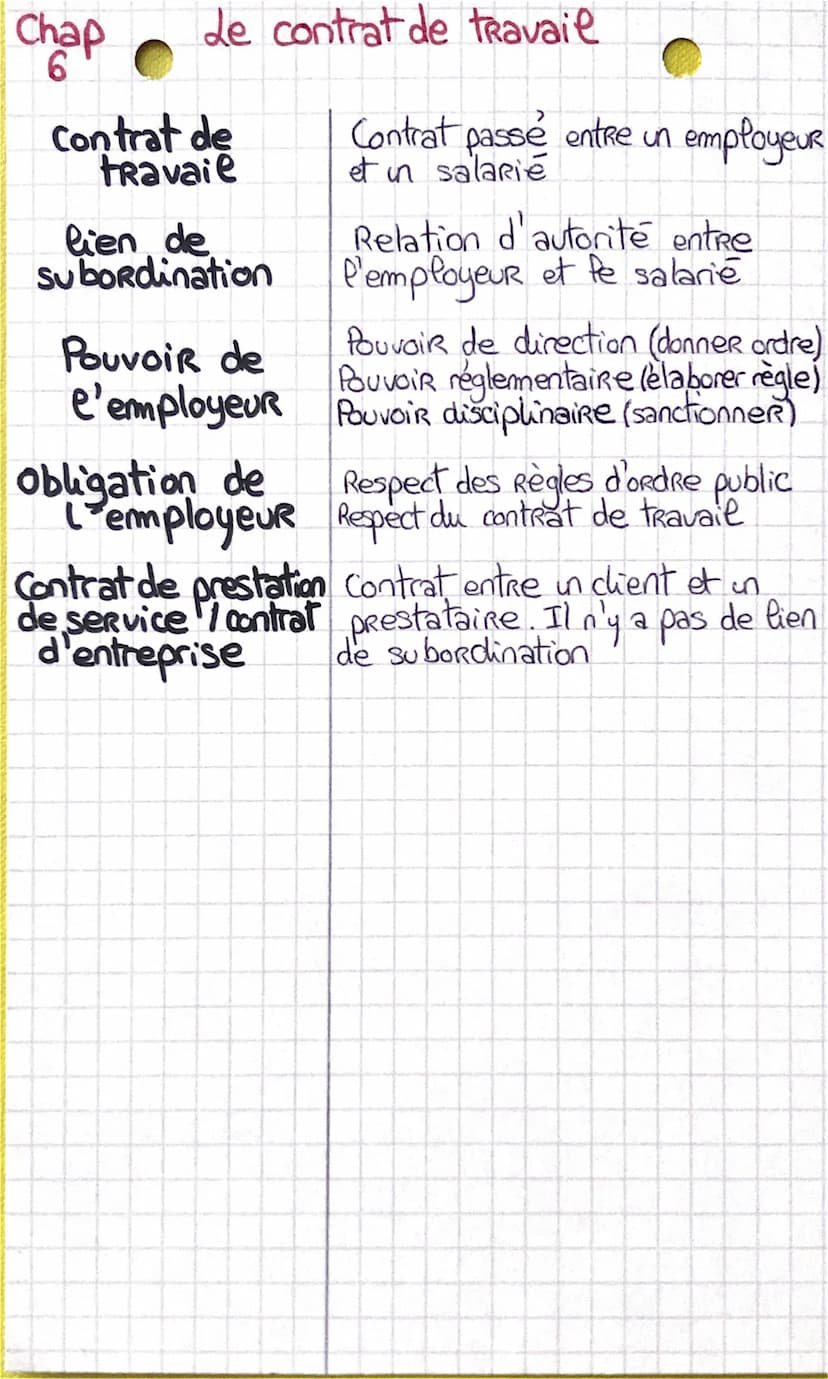 Chap 6 Le contrat de travail
Contrat de travail
Contrat passé entre un employeur
et un salarié
lien de subordination
Relation d'autorité entre
l'employeur et le salarié
Pouvoir de l'employeur
Pouvoir de direction (donner ordre)
Pouvoir réglementaire (élaborer règle)
Pouvoir disciplinaire (sanctionner)
Obligation de l'employeur
Respect des règles d'ordre public
Respect du contrat de travail
Contrat de prestation
de service / contrat
d'entreprise
Contrat entre un client et un
prestataire. Il n'y a pas de lien
de subordination